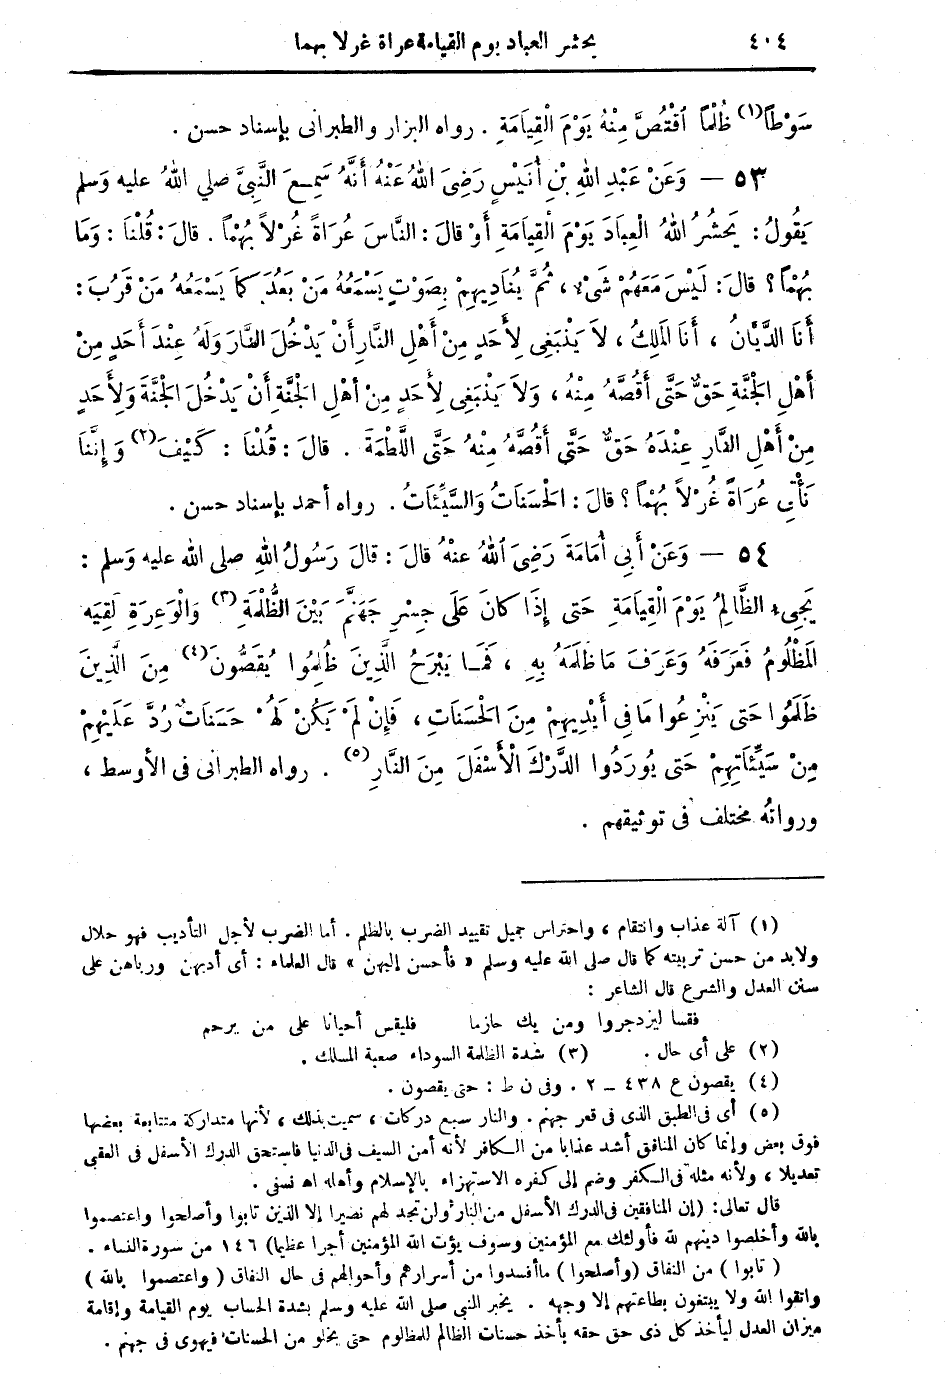 ٤٠٤ يحشر العباد يوم القيامة عراة غرلا بهما
سَوْطاً(١) ظُلْماً اقْتُصَّ مِنْهُ يَوْمَ الْقِيَامَةِ . رواه البزار والطبرانى بإسناد حسن .
٥٣ — وَعَنْ عَبْدِ اللهِ بْنِ أُنَيْسٍ رَضِىَ اللهُ عَنْهُ أَنَّهُ سَمِعَ النَّبِىَّ صلى اللهُ عليه وَسلم
يَقُولُ : يَحْشُرُ اللهُ الْعِبَادَ يَوْمَ الْقِيَامَةِ أَوْ قالَ : النَّاسَ عُرَاةً غُرْلاً بُهْماً . قالَ : قُلْنَا : وَمَا
بُهْماً ؟ قالَ : لَيْسَ مَعَهُمْ شَىْءٌ ، ثُمَّ يُنَادِيهِمْ بِصَوْتٍ يَسْمَعُهُ مَنْ بَعُدَ كَمَا يَسْمَعُهُ مَنْ قَرُبَ :
أَنَا الدَّيَّانُ ، أَنَا الْمَلِكُ ، لاَ يَنْبَغِى لِأَحَدٍ مِنْ أَهْلِ النَّارِ أَنْ يَدْخُلَ النَّارَ وَلَهُ عِنْدَ أَحَدٍ مِنْ
أَهْلِ الْجَنَّةِ حَقٌّ حَتَّى أَقُصَّهُ مِنْهُ ، وَلاَ يَنْبَغِى لِأَحَدٍ مِنْ أَهْلِ الْجَنَّةِ أَنْ يَدْخُلَ الْجَنَّةَ وَلِأَحَدٍ
مِنْ أَهْلِ النَّارِ عِنْدَهُ حَقٌّ حَتَّى أَقُصَّهُ مِنْهُ حَتَّى اللَّطْمَةَ . قالَ : قُلْنَا : كَيْفَ(٢) وَإِنَّنَا
نَأْتِى عُرَاةً غُرْلاً بُهْماً ؟ قالَ : الْحَسَنَاتُ وَالسَّيِّئَاتُ . رواه أحمد بإسناد حسن .
٥٤ — وَعَنْ أَبِى أُمَامَةَ رَضِىَ اللهُ عنْهُ قالَ : قالَ رَسُولُ اللهِ صلى الله عليه وَسلم :
يَجِىءُ الظَّالِمُ يَوْمَ الْقِيَامَةِ حَتى إِذَا كانَ عَلَى جِسْرِ جَهَنَّمَ بَيْنَ الظُّلْمَةِ(٣) وَالْوَعِرَةِ لَقِيَه
الْمَظْلُومُ فَعَرَفَهُ وَعَرَفَ مَا ظَلَمَهُ بِهِ ، فَمَا يَبْرَحُ الَّذِينَ ظُلِمُوا يُقَصُّونَ(٤) مِنَ الَّذِينَ
ظَلَمُوا حَتى يَنْزِعُوا مَا فى أَيْدِيهِمْ مِنَ الْحَسَنَاتِ ، فَإِنْ لَمْ يَكُنْ لَهُمْ حَسَنَاتٌ رُدَّ عَلَيْهِمْ
مِنْ سَيِّئَاتِهِمْ حَتى يُورَدُوا الدَّرْكَ الْأَسْفَلَ مِنَ النَّارِ(٥) . رواه الطبرانى فى الأوسط ،
ورواتُه مختلف فى توثيقهم .
(١) آلة عذاب وانتقام ، واحتراس جميل تقييد الضرب بالظلم . أما الضرب لأجل التأديب فهو حلال
ولابد من حسن تربيته كما قال صلى الله عليه وسلم « فأحسن إليهن » قال العلماء : أى أدبهن ورباهن على
سنن العدل والشرع قال الشاعر :
فقسا ليزدجروا ومن يك حازما فليقس أحيانا على من يرحم
(٢) على أى حال . (٣) شدة الظلمة السوداء صعبة المسلك .
(٤) يقصون ع ٤٣٨ — ٢ . وفى ن ط : حتى يقصون .
(٥) أى فى الطبق الذى فى قعر جهنم . والنار سبع دركات ، سميت بذلك ، لأنها متداركة متتابعة بعضها
فوق بعض وإنما كان المنافق أشد عذابا من الكافر لأنه أمن السيف فى الدنيا فاستحق الدرك الأسفل فى العقبى
تعديلا ، ولأنه مثله فى الكفر وضم إلى كفره الاستهزاء بالإسلام وأهله اه نسفى .
قال تعالى : (إن المنافقين فى الدرك الأسفل من النار ولن تجد لهم نصيرا إلا الذين تابوا وأصلحوا واعتصموا
بالله وأخلصوا دينهم لله فأولئك مع المؤمنين وسوف يؤت الله المؤمنين أجرا عظيما) ١٤٦ من سورة النساء .
( تابوا ) من النفاق (وأصلحوا) ما أفسدوا من أسرارهم وأحوالهم فى حال النفاق ( واعتصموا بالله )
واتقوا الله ولا يبتغون بطاعتهم إلا وجهه . يخبر النبى صلى الله عليه وسلم بشدة الحساب يوم القيامة وإقامة
ميزان العدل ليأخذ كل ذى حق حقه يأخذ حسنات الظالم للمظلوم حتى يخلو من الحسنات فيهوى فى جهنم .